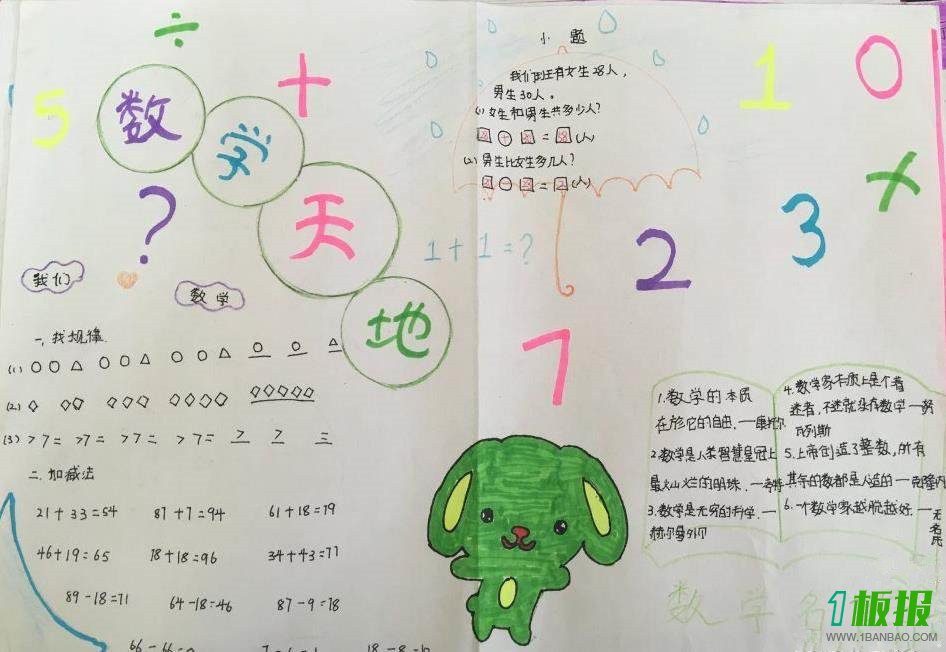 ÷
5
数
学
天
地
+
?
我们
数学
小题
我们班有女生28人，
男生30人。
(1)女生和男生共多少人？
28 + 30 = 58 (人)
(2)男生比女生多几人？
30 - 28 = 2 (人)
1+1=?
1
0
×
2
3
7
一、找规律
(1) ○○△ ○○△ ○○△ ○ ○ △
(2) ◇ ◇◇ ◇◇◇ ◇◇◇◇ ◇◇◇◇◇
(3) >7= >7= >7= >7= > 7 =
二、加减法
21+33=54 87+7=94 61+18=79
46+19=65 78+18=96 34+43=77
89-18=71 64-18=46 87-9=78
66-66=0
18-8=10
1.数学的本质
在於它的自由.一康托尔
2.数学是人类智慧皇冠上
最灿烂的明珠.一考特
3.数学是无穷的科学.一
赫尔曼外尔
4.数学家本质上是个着
迷者,不迷就没有数学一努
瓦列斯
5.上帝创造了整数,所有
其余的数都是人造的一克隆内
6.一个数学家越脱越好.一
无名氏
数学名
1板报
WWW.1BANBAO.COM